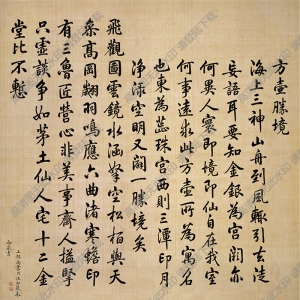 方壺勝境
海上三神山舟到風輒引去徒
妄語耳要知金銀為宮闕亦
何異人寰即境即仙自在我室
何事遠求此方壺所為寓名
也東為蕊珠宮西則三潭印月
淨淥空明又闢一勝境矣
飛觀圖雲鏡水涵拏空松柏與天
參高岡翽羽鳴應六曲渚寒蟾印
有三魯匠營心非美事齊人搤掔
只虛談爭如茅土仙人宅十二金
堂比不慙
工部尚書臣汪由敦奉
勅敬書